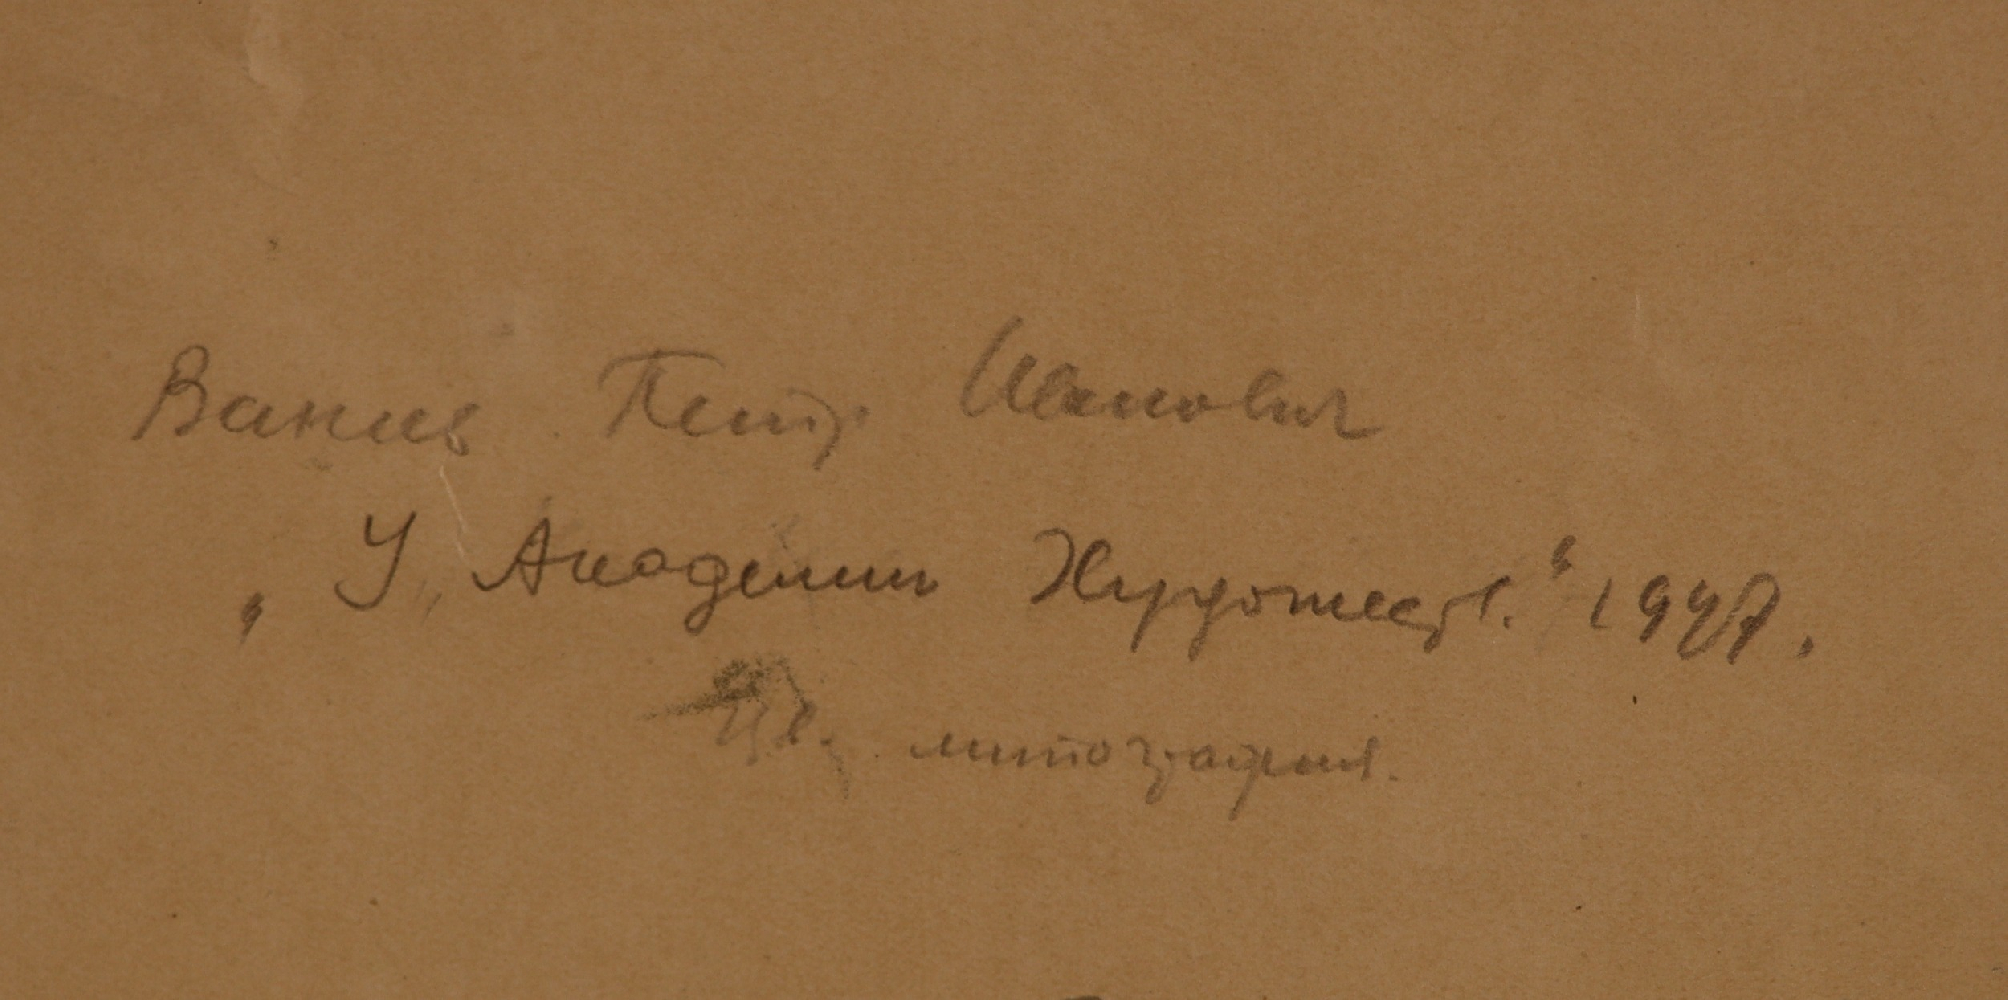 Ванис Петр Иванович
„У Академии Художеств.“ 1947.
Цв. литография.